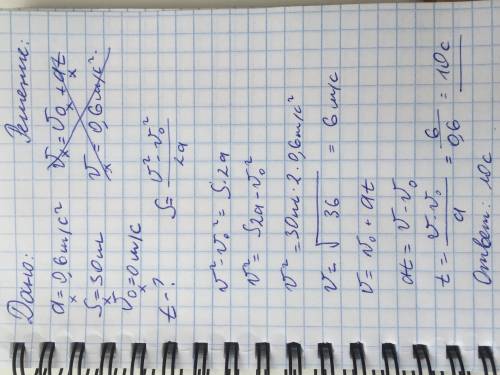 Дано:
a_x = 0,6 м/с²
S_x = 30 м
V_0x = 0 м/с
t - ?
Решение:
V_x = V_0x + a_x t
V_x = 0,6 м/с²
S = (V² - V_0²) / 2a
V² - V_0² = S·2a
V² = S2a - V_0²
V² = 30м · 2 · 0,6 м/с²
V = √36 = 6 м/с
V = V_0 + at
at = V - V_0
t = (V - V_0) / a = 6 / 0,6 = 10 с
Ответ: 10 с